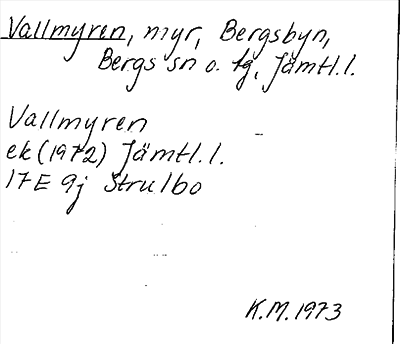 Vallmyren, myr, Bergsbyn,
Bergs sn o. tg, Jämtl.l.
Vallmyren
ek (1972) Jämtl.l.
17E 9j Strulbo
K.M. 1973